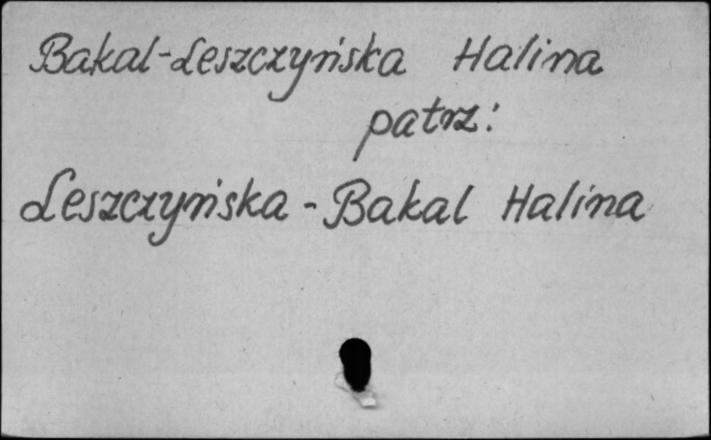 Bakal-Leszczyńska Halina
patrz:
Leszczyńska - Bakal Halina